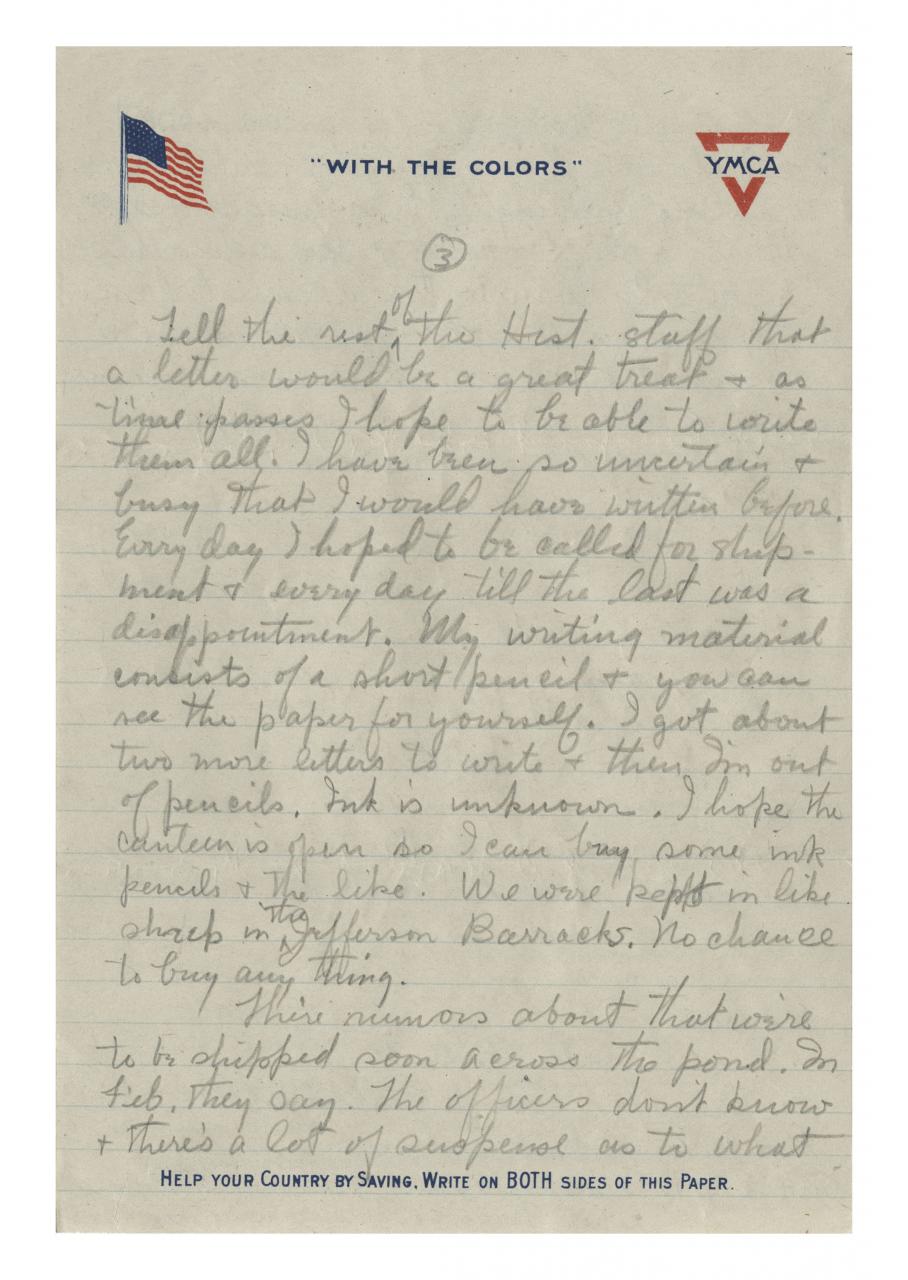 "WITH THE COLORS"
YMCA
3
Tell the rest of the Hist. staff that
a letter would be a great treat + as
time passes I hope to be able to write
them all. I have been so uncertain +
busy that I would have written before.
Every day I hoped to be called for ship-
ment + every day till the last was a
disappointment. My writing material
consists of a short pencil + you can
see the paper for yourself. I got about
two more letters to write + then I'm out
of pencils. Ink is unknown. I hope the
canteen is open so I can buy some ink
pencils + the like. We were kept in like
sheep in the Jefferson Barracks. No chance
to buy any thing.
There rumors about that we're
to be shipped soon across the pond. In
Feb. they say. The officers don't know
+ there's a lot of suspense as to what
HELP YOUR COUNTRY BY SAVING, WRITE ON BOTH SIDES OF THIS PAPER.